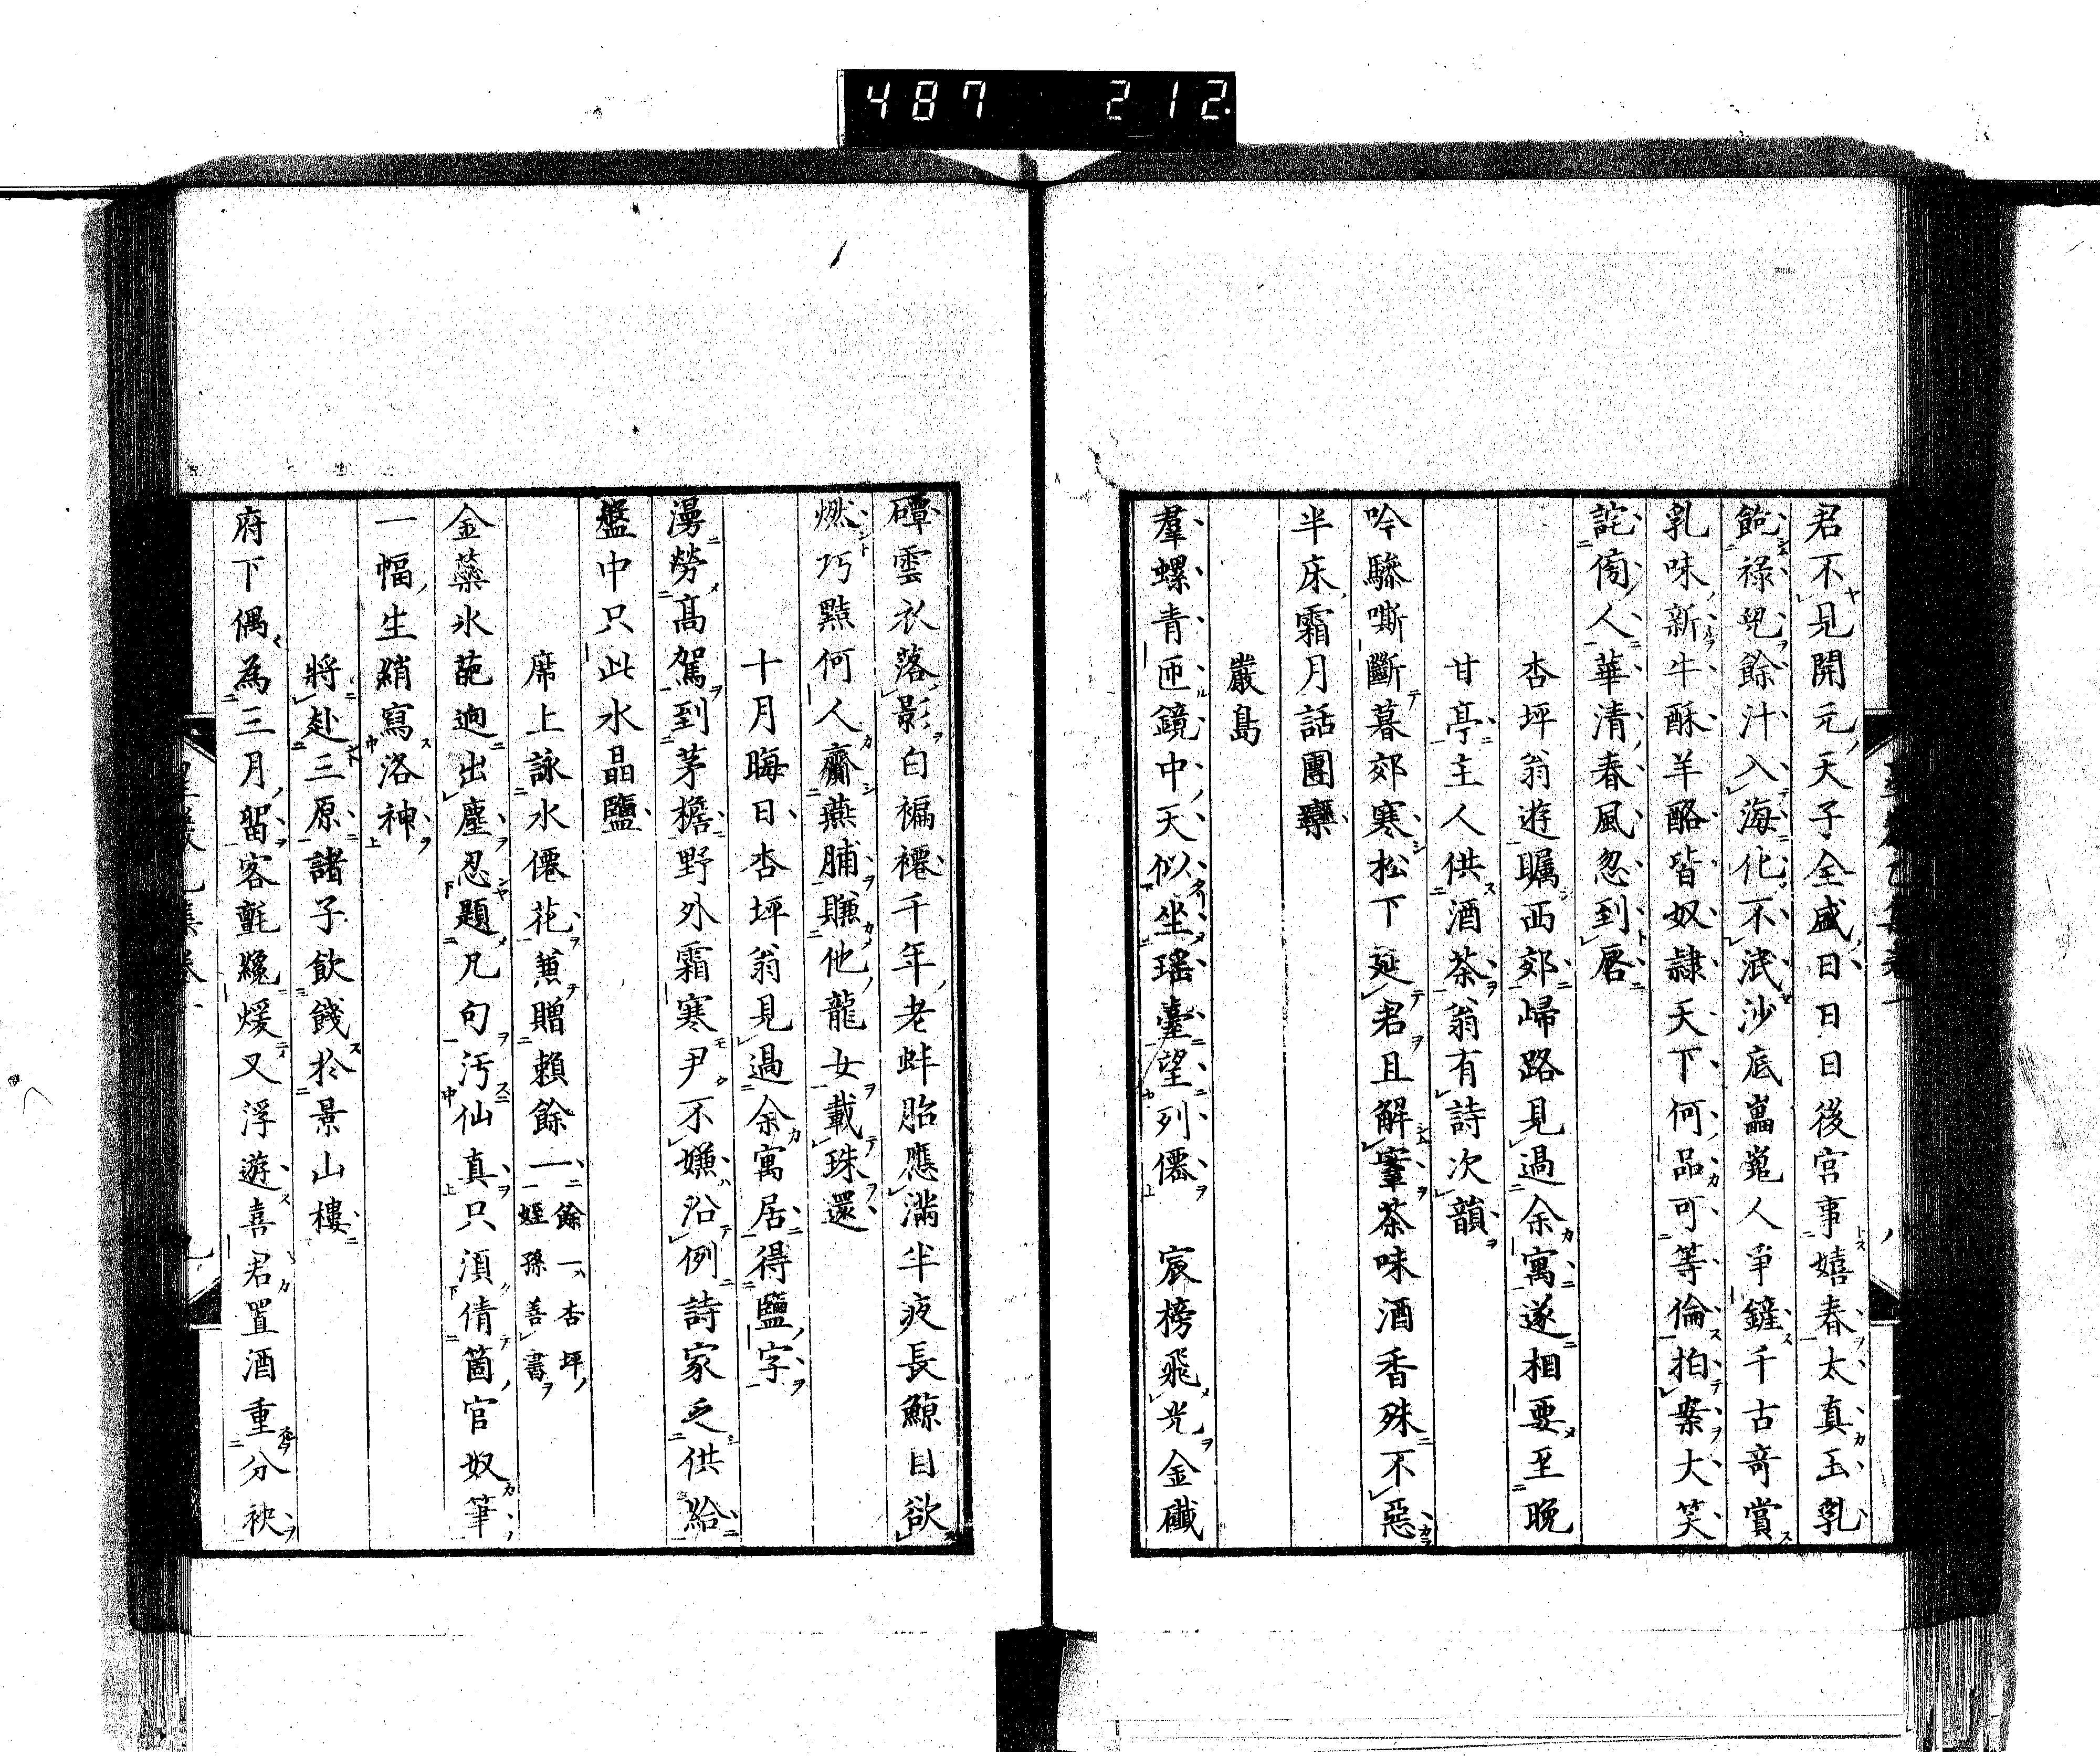 487 212
君不見開元天子全盛日日日後宮事嬉春太真玉乳
飽祿兒餘汁入海化不泯沙底嵓嵬人爭鏟千古奇賞
乳味新牛酥羊酪皆奴隷天下何品可等倫拍案大笑
詫傍人華清春風忽到唇
杏坪翁遊矚西郊歸路見過余寓遂相要至晚
甘亭主人供酒茶翁有詩次韻
吟驂嘶斷暮郊寒松下延君且解鞌茶味酒香殊不惡
半床霜月話團欒
嚴島
羣螺青匝鏡中天似坐瑤臺望列僊 宸榜飛光金礀
礀雲衣落影白褊褼千年老蚌胎應滿半夜長鯨目欲
燃巧點何人齎燕脯賺他龍女載珠還
十月晦日杏坪翁見過余寓居得鹽字
漫勞高駕到茅檐野外霜寒尹不嫌沿例詩家乏供給
盤中只此水晶鹽
席上詠水僊花兼贈賴餘一餘一杏坪姪孫善書
金蘂氷葩迥出塵忍題凡句汚仙真只須倩箇官奴筆
一幅生綃寫洛神
將赴三原諸子飲餞於景山樓
府下偶為三月留客氈纔煖又浮遊喜君置酒重分袂